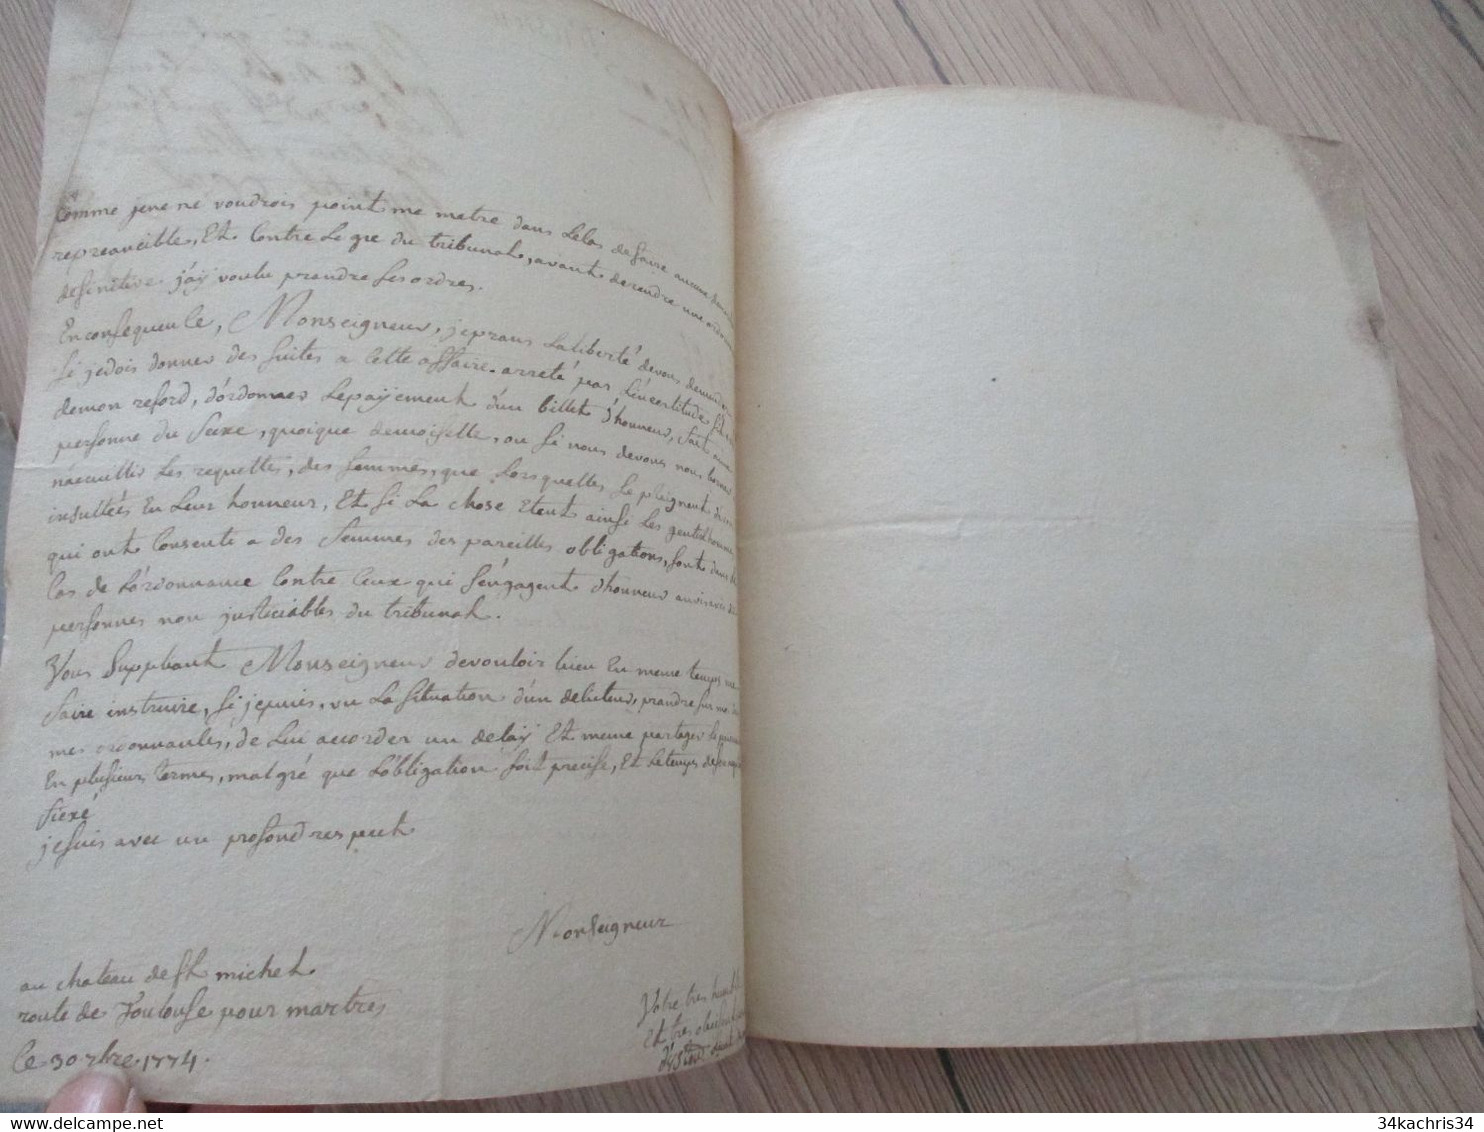 Comme jene ne voudrois point me metre dans Lecas defaire aucune
repreancible, Et Contre Le gre du tribunal, avant derendre une
definitive. j'aÿ voulu prendre ses ordres.
Enconsequence, Monseigneur, jeprans Laliberté devous demander
Si jedois donner des suites a Cette affaire. arreté par L'incertitude
demon resord, d'ordonner Lepaÿement d'un billet d'honneur, fait
personne du Sexe, quoique demoiselle, ou si nous devons nous borner
nacuillir Les requettes, des femmes, que Lorsquelles se pleignent
insultées En Leur honneur, Et si La chose Etent ainsi Les gentilhommes
qui ont Consenti a des femmes des pareilles obligations, sont dans le
Cas de L'ordonnance Contre Ceux qui s'engagent d'honneur anvers
personnes non justiciables du tribunal.
Vous suppliant Monseigneur devouloir bien En meme temps me
faire instruire, si jepuis, vu La situation d'un debiteur, prandre sur moi
mes ordonnances, de Lui accorder un delaÿ Et meme partager le
En plusieurs termes, malgré que L'obligation soit precise, Et Letemps
fixé
jesuis avec un profond respect
Monseigneur
au chateau de st michel
route de Toulouse pour martres
Ce 30 7bre. 1774.
Votre tres humble
Et tres
34kachris34